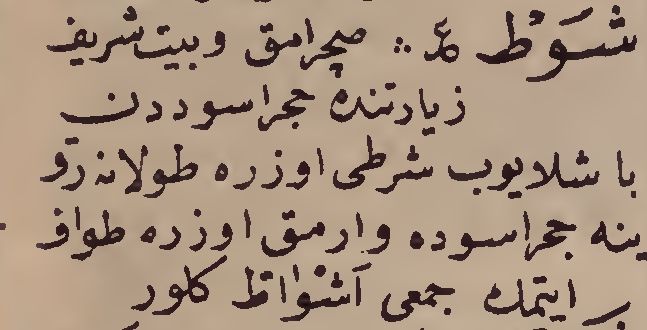 شَوْط ع ∴ صچرامق و بيت شريف
زيارتنده حجر اسوددن
باشلايوب شرطى اوزره طولانەرق
ينه حجر اسوده وارمق اوزره طواف
ايتمك جمعى اَشْوَاط كلور